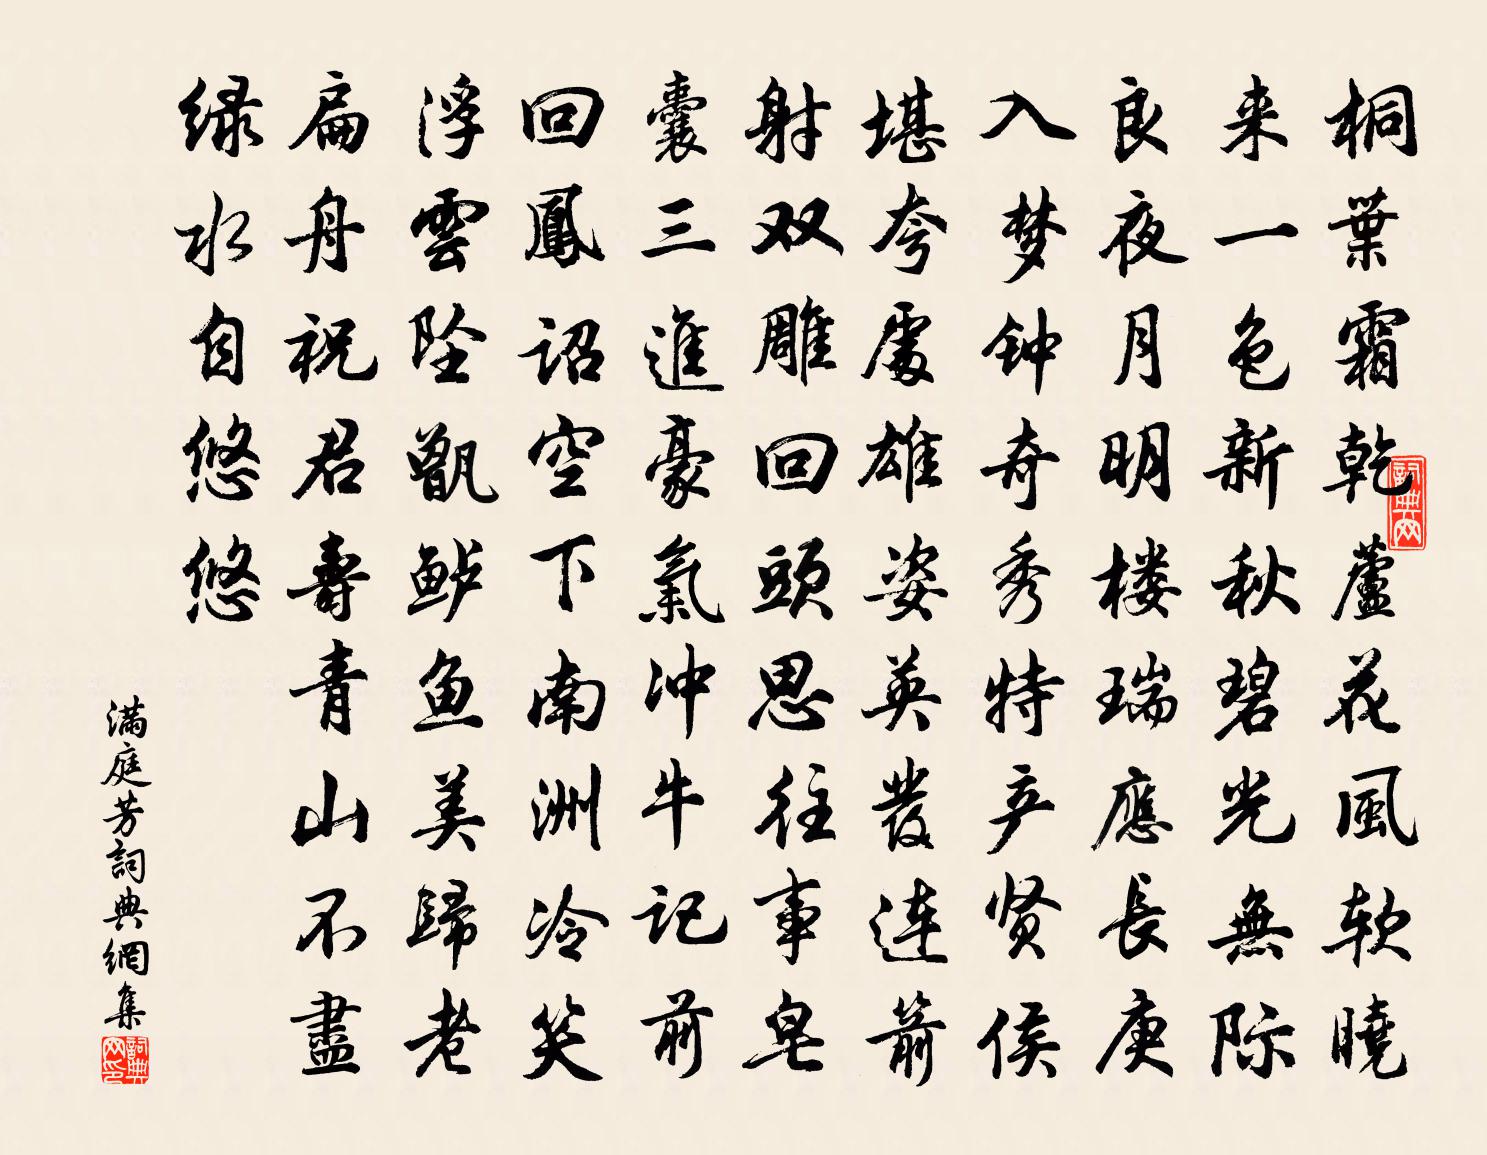 桐葉霜乾蘆花風软曉
来一色新秋碧光無际
良夜月明楼瑞應長庚
入梦钟奇秀特产贤侯
堪夸處雄姿英發连箭
射双雕回頭思往事皂
囊三進豪氣冲牛记前
回鳳诏空下南洲冷笑
浮雲坠甑鲈鱼美歸老
扁舟祝君壽青山不盡
绿水自悠悠
满庭芳詞典網集
詞典网